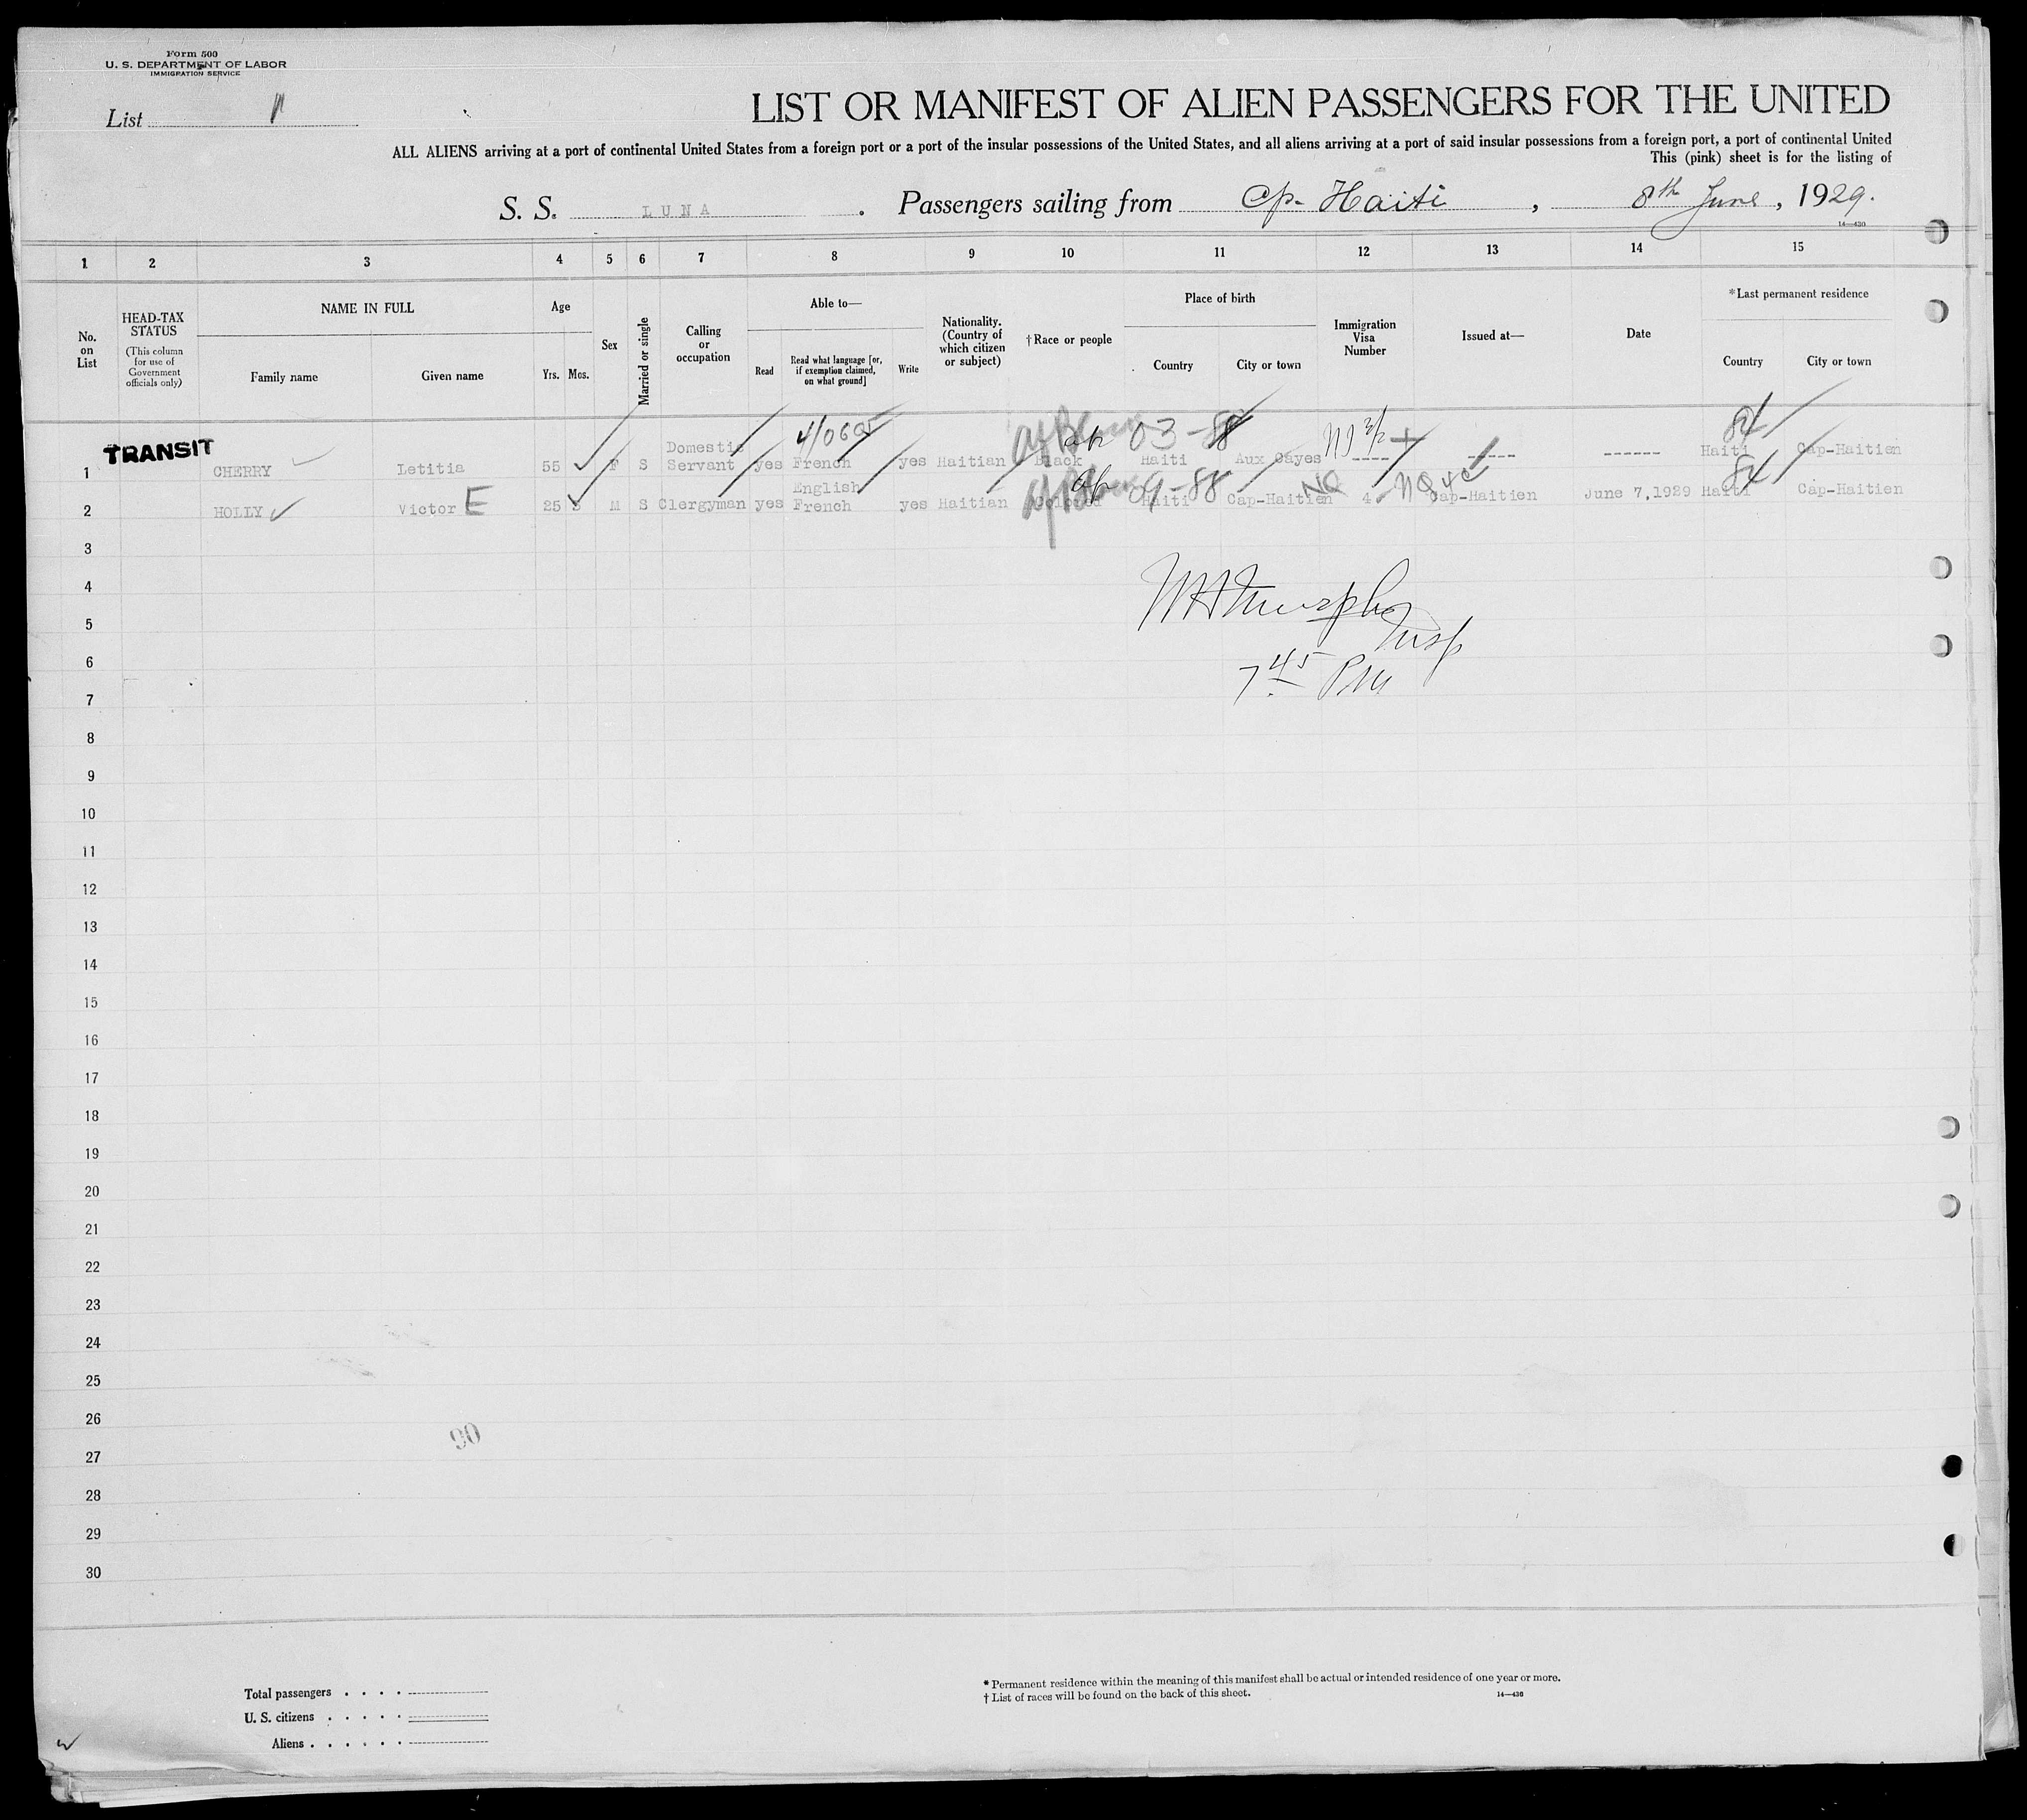 Form 500
U. S. DEPARTMENT OF LABOR
IMMIGRATION SERVICE
List
LIST OR MANIFEST OF ALIEN PASSENGERS FOR THE UNITED
ALL ALIENS arriving at a port of continental United States from a foreign port or a port of the insular possessions of the United States, and all aliens arriving at a port of said insular possessions from a foreign port, a port of continental United
This (pink) sheet is for the listing of
S. S. LUNA. Passengers sailing from Cp. Haiti, 8th June, 1929.
14—430
1 2 3 4 5 6 7 8 9 10 11 12 13 14 15
No. on List
HEAD-TAX STATUS
(This column for use of Government officials only)
NAME IN FULL
Family name Given name
Age
Yrs. Mos.
Sex
Married or single
Calling or occupation
Able to—
Read
Read what language [or, if exemption claimed, on what ground]
Write
Nationality. (Country of which citizen or subject)
†Race or people
Place of birth
Country City or town
Immigration Visa Number
Issued at—
Date
*Last permanent residence
Country City or town
TRANSIT
1 CHERRY Letitia 55 F S Domestic Servant yes French yes Haitian Black Haiti Aux Cayes ---- ----- ------ Haiti Cap-Haitien
03-88 84
2 HOLLY Victor E 25 M S Clergyman yes English French yes Haitian Haiti Cap-Haitien 4 Cap-Haitien June 7, 1929 Haiti Cap-Haitien
09-88 NQ 84
3
4
5
6
7
8
9
10
11
12
13
14
15
16
17
18
19
20
21
22
23
24
25
26
27
28
29
30
Murphy
Insp
7 45 PM
90
Total passengers . . . .
U. S. citizens . . . . .
Aliens . . . . . .
* Permanent residence within the meaning of this manifest shall be actual or intended residence of one year or more.
† List of races will be found on the back of this sheet.
14—430